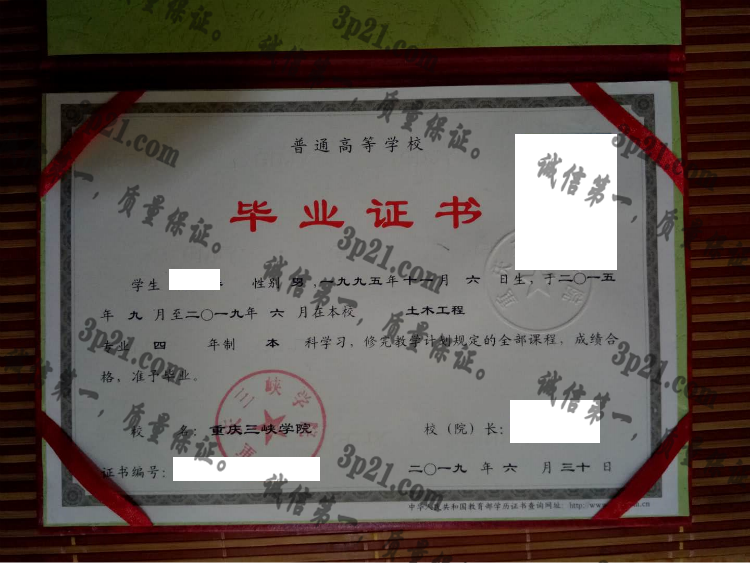 普通高等学校
毕业证书
学生 性别 男,一九九五年十一月 六 日生,于二〇一五
年 九 月至二〇一九年 六 月在本校 土木工程
专业 四 年制 本 科学习,修完教学计划规定的全部课程,成绩合
格,准予毕业。
校 名:重庆三峡学院
校(院)长:
证书编号:
二〇一九 年 六 月 三十 日
中华人民共和国教育部学历证书查询网址:
3p21.com
诚信第一,质量保证。